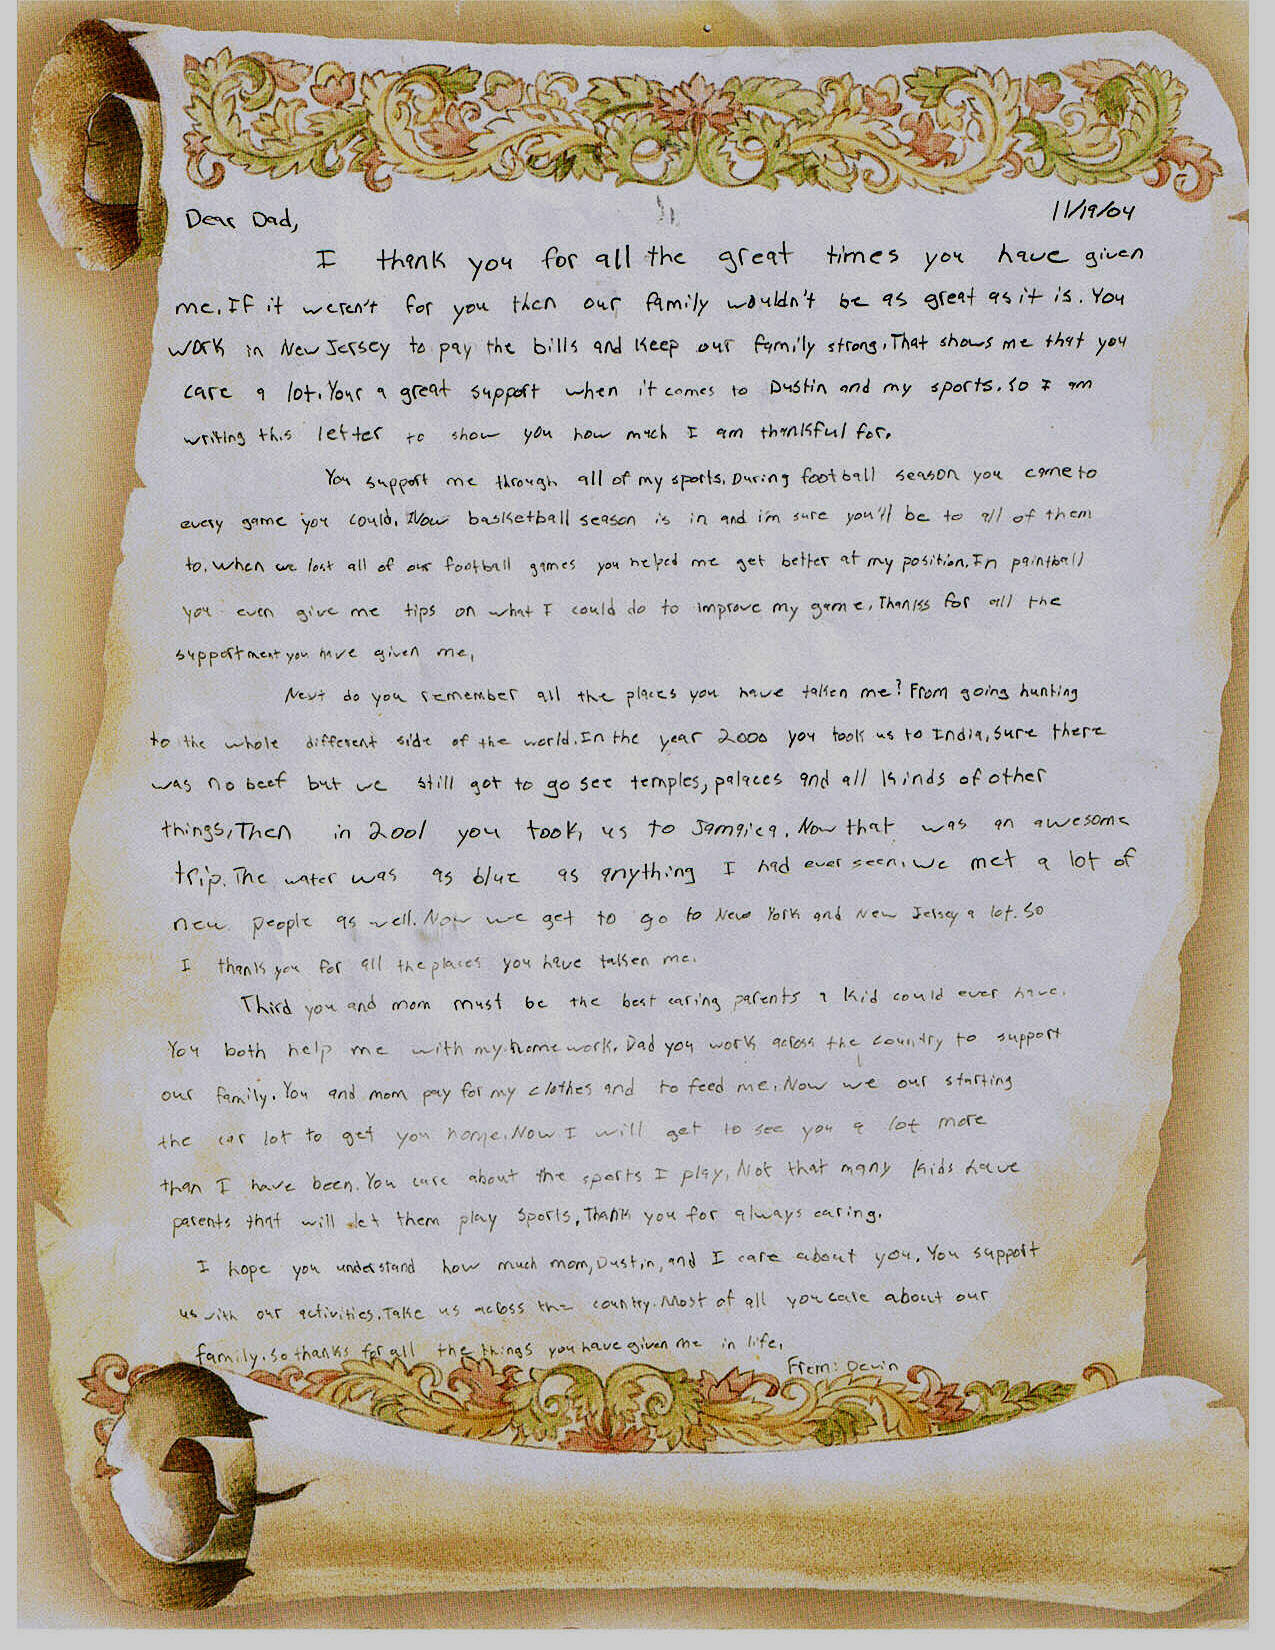 Dear Dad,
11/19/04
I thank you for all the great times you have given
me. If it weren't for you then our family wouldn't be as great as it is. You
work in New Jersey to pay the bills and keep our family strong. That shows me that you
care a lot. Your a great support when it comes to Dustin and my sports. So I am
writing this letter to show you how much I am thankful for.
You support me through all of my sports. During football season you came to
every game you could. Now basketball season is in and i'm sure you'll be to all of them
to. When we lost all of our football games you helped me get better at my position. In paintball
you even give me tips on what I could do to improve my game. Thanks for all the
supportment you have given me.
Next do you remember all the places you have taken me? From going hunting
to the whole different side of the world. In the year 2000 you took us to India, sure there
was no beef but we still got to go see temples, palaces and all kinds of other
things. Then in 2001 you took us to Jamaica. Now that was an awesome
trip. The water was as blue as anything I had ever seen. We met a lot of
new people as well. Now we get to go to New York and New Jersey a lot. So
I thank you for all the places you have taken me.
Third you and mom must be the best caring parents a kid could ever have.
You both help me with my homework. Dad you work across the country to support
our family. You and mom pay for my clothes and to feed me. Now we our starting
the car lot to get you home. Now I will get to see you a lot more
than I have been. You care about the sports I play. Not that many kids have
parents that will let them play sports. Thank you for always caring.
I hope you understand how much mom, Dustin, and I care about you. You support
us with our activities. Take us across the country. Most of all you care about our
family. So thanks for all the things you have given me in life.
From: Devin